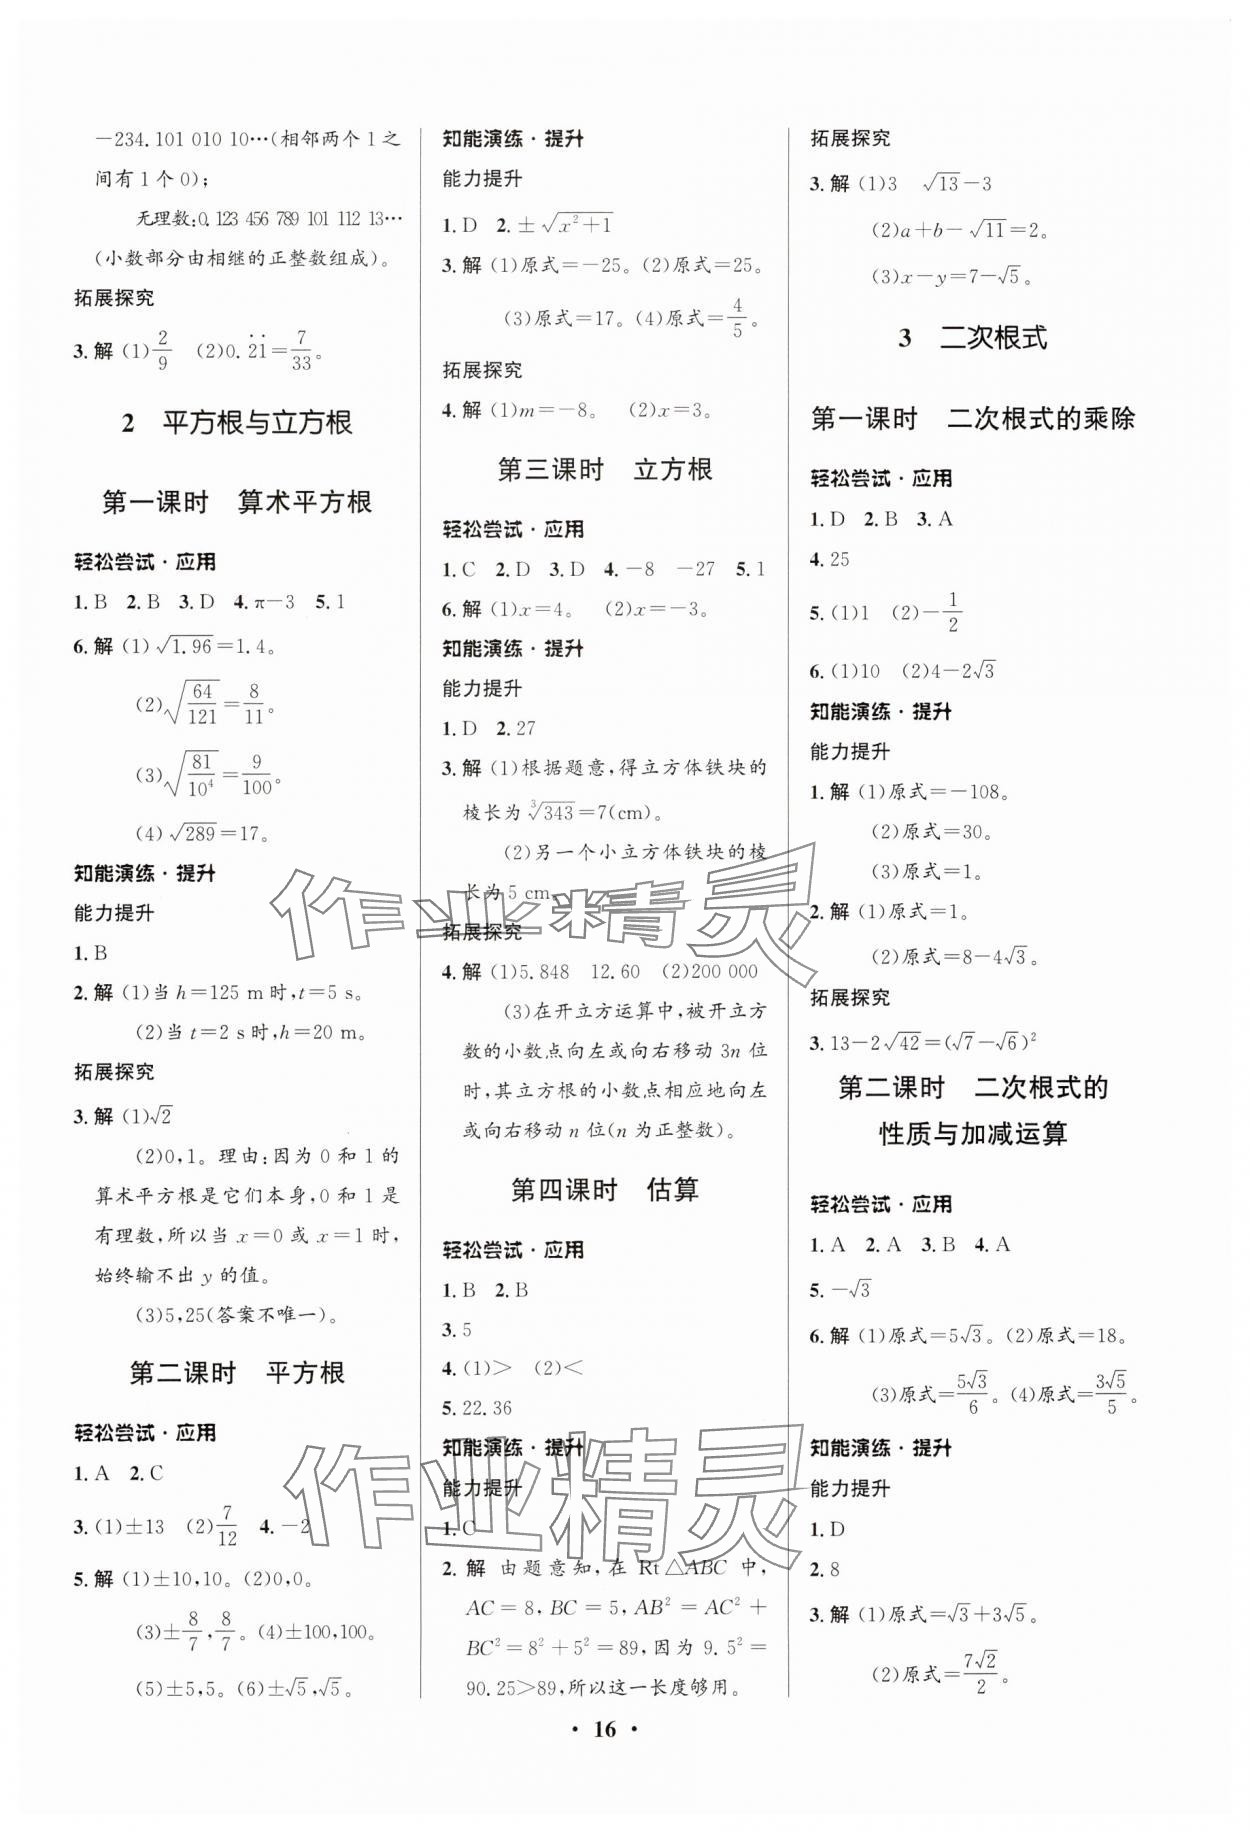 －234.101 010 10…(相邻两个1之
间有1个0);
无理数:0.123 456 789 101 112 13…
(小数部分由相继的正整数组成)。
拓展探究
3.解 (1)2/9 (2)0.2̇1̇＝7/33。
2 平方根与立方根
第一课时 算术平方根
轻松尝试·应用
1.B 2.B 3.D 4.π－3 5.1
6.解 (1)√1.96＝1.4。
(2)√(64/121)＝8/11。
(3)√(81/10⁴)＝9/100。
(4)√289＝17。
知能演练·提升
能力提升
1.B
2.解 (1)当h＝125 m时,t＝5 s。
(2)当t＝2 s时,h＝20 m。
拓展探究
3.解 (1)√2
(2)0,1。理由:因为0和1的
算术平方根是它们本身,0和1是
有理数,所以当x＝0或x＝1时,
始终输不出y的值。
(3)5,25(答案不唯一)。
第二课时 平方根
轻松尝试·应用
1.A 2.C
3.(1)±13 (2)7/12 4.－2
5.解 (1)±10,10。(2)0,0。
(3)±8/7,8/7。(4)±100,100。
(5)±5,5。(6)±√5,√5。
知能演练·提升
能力提升
1.D 2.±√(x²＋1)
3.解 (1)原式＝－25。(2)原式＝25。
(3)原式＝17。(4)原式＝4/5。
拓展探究
4.解 (1)m＝－8。 (2)x＝3。
第三课时 立方根
轻松尝试·应用
1.C 2.D 3.D 4.－8 －27 5.1
6.解 (1)x＝4。 (2)x＝－3。
知能演练·提升
能力提升
1.D 2.27
3.解 (1)根据题意,得立方体铁块的
棱长为∛343＝7(cm)。
(2)另一个小立方体铁块的棱
长为5 cm。
拓展探究
4.解 (1)5.848 12.60 (2)200 000
(3)在开立方运算中,被开立方
数的小数点向左或向右移动3n位
时,其立方根的小数点相应地向左
或向右移动n位(n为正整数)。
第四课时 估算
轻松尝试·应用
1.B 2.B
3.5
4.(1)＞ (2)＜
5.22.36
知能演练·提升
能力提升
1.C
2.解 由题意知,在Rt△ABC中,
AC＝8,BC＝5,AB²＝AC²＋
BC²＝8²＋5²＝89,因为9.5²＝
90.25＞89,所以这一长度够用。
拓展探究
3.解 (1)3 √13－3
(2)a＋b－√11＝2。
(3)x－y＝7－√5。
3 二次根式
第一课时 二次根式的乘除
轻松尝试·应用
1.D 2.B 3.A
4.25
5.(1)1 (2)－1/2
6.(1)10 (2)4－2√3
知能演练·提升
能力提升
1.解 (1)原式＝－108。
(2)原式＝30。
(3)原式＝1。
2.解 (1)原式＝1。
(2)原式＝8－4√3。
拓展探究
3.13－2√42＝(√7－√6)²
第二课时 二次根式的
性质与加减运算
轻松尝试·应用
1.A 2.A 3.B 4.A
5.－√3
6.解 (1)原式＝5√3。(2)原式＝18。
(3)原式＝5√3/6。(4)原式＝3√5/5。
知能演练·提升
能力提升
1.D
2.8
3.解 (1)原式＝√3＋3√5。
(2)原式＝7√2/2。
· 16 ·
作业精灵
作业精灵